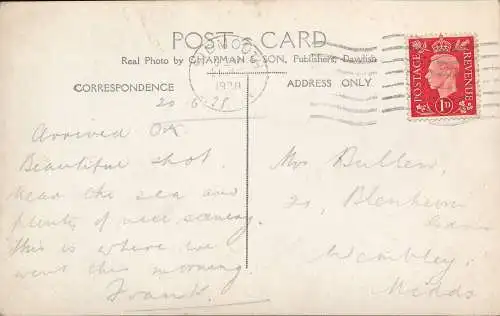 POST CARD
Real Photo by CHAPMAN & SON, Publishers, Dawlish
CORRESPONDENCE
ADDRESS ONLY
POSTAGE
REVENUE
1D
Arrived OK
Beautiful spot.
Near the sea and
plenty of nice scenery.
This is where we
went this morning.
Frank.
Mrs Bullen,
Blenheim
Gdns
Wembley,
Midds